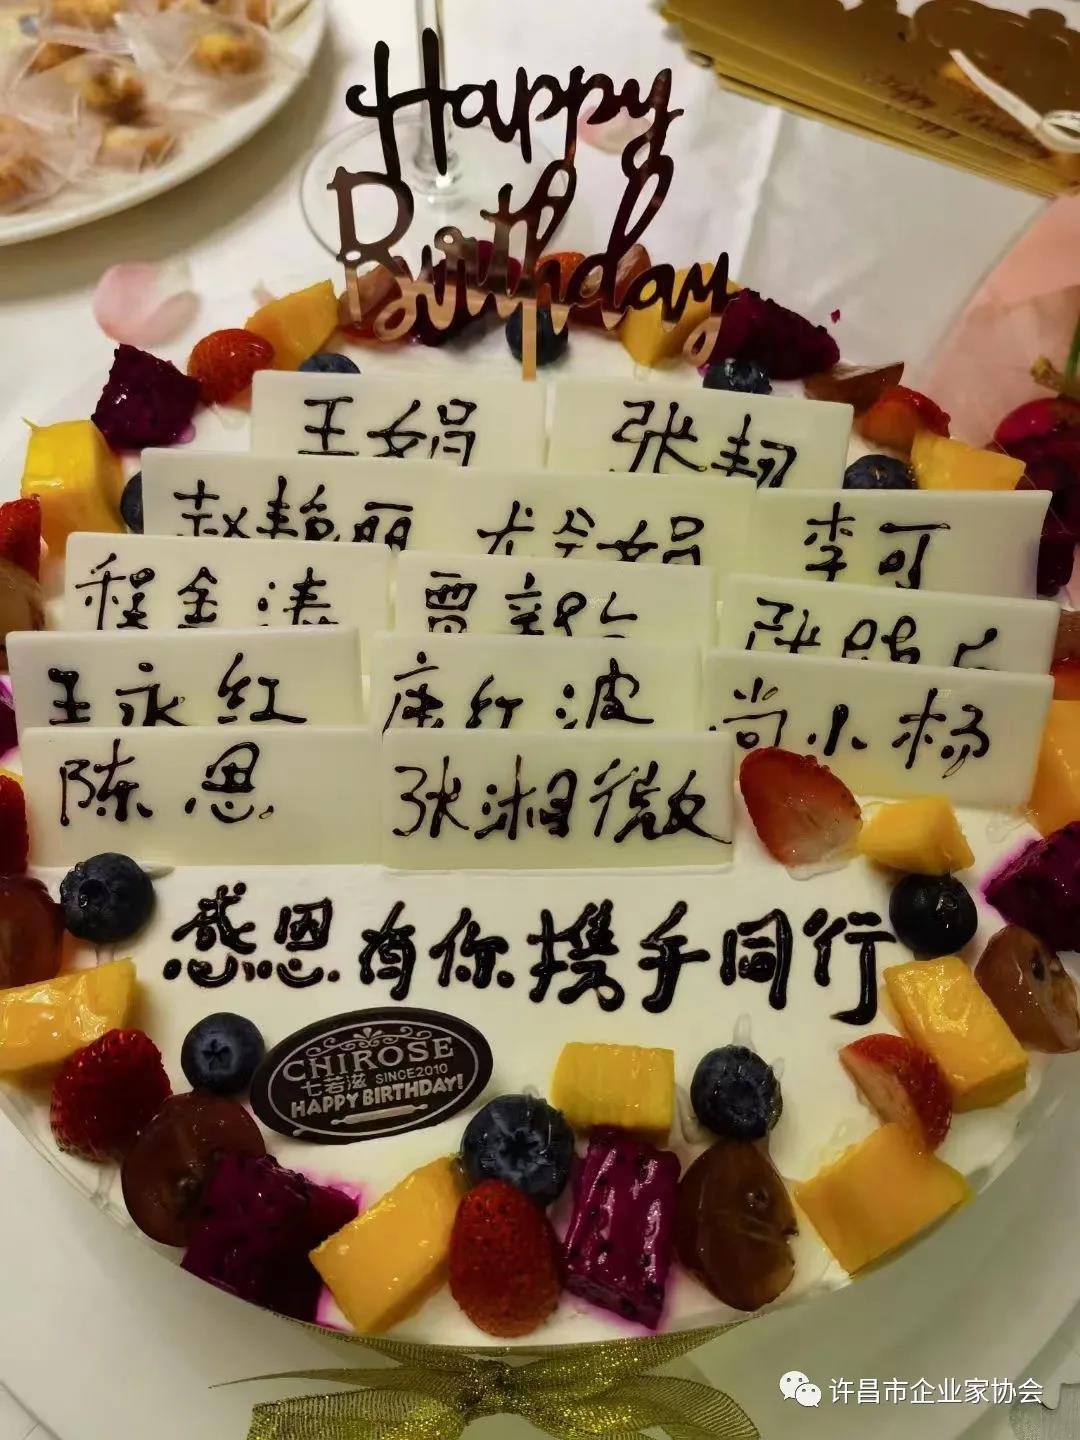 Happy
Birthday
王娟
张韧
赵艳丽
李可
程金涛
王永红
康红波
尚小杨
陈恩
张湘微
感恩有你携手同行
CHIROSE
七若滋 SINCE2010
HAPPY BIRTHDAY!
许昌市企业家协会